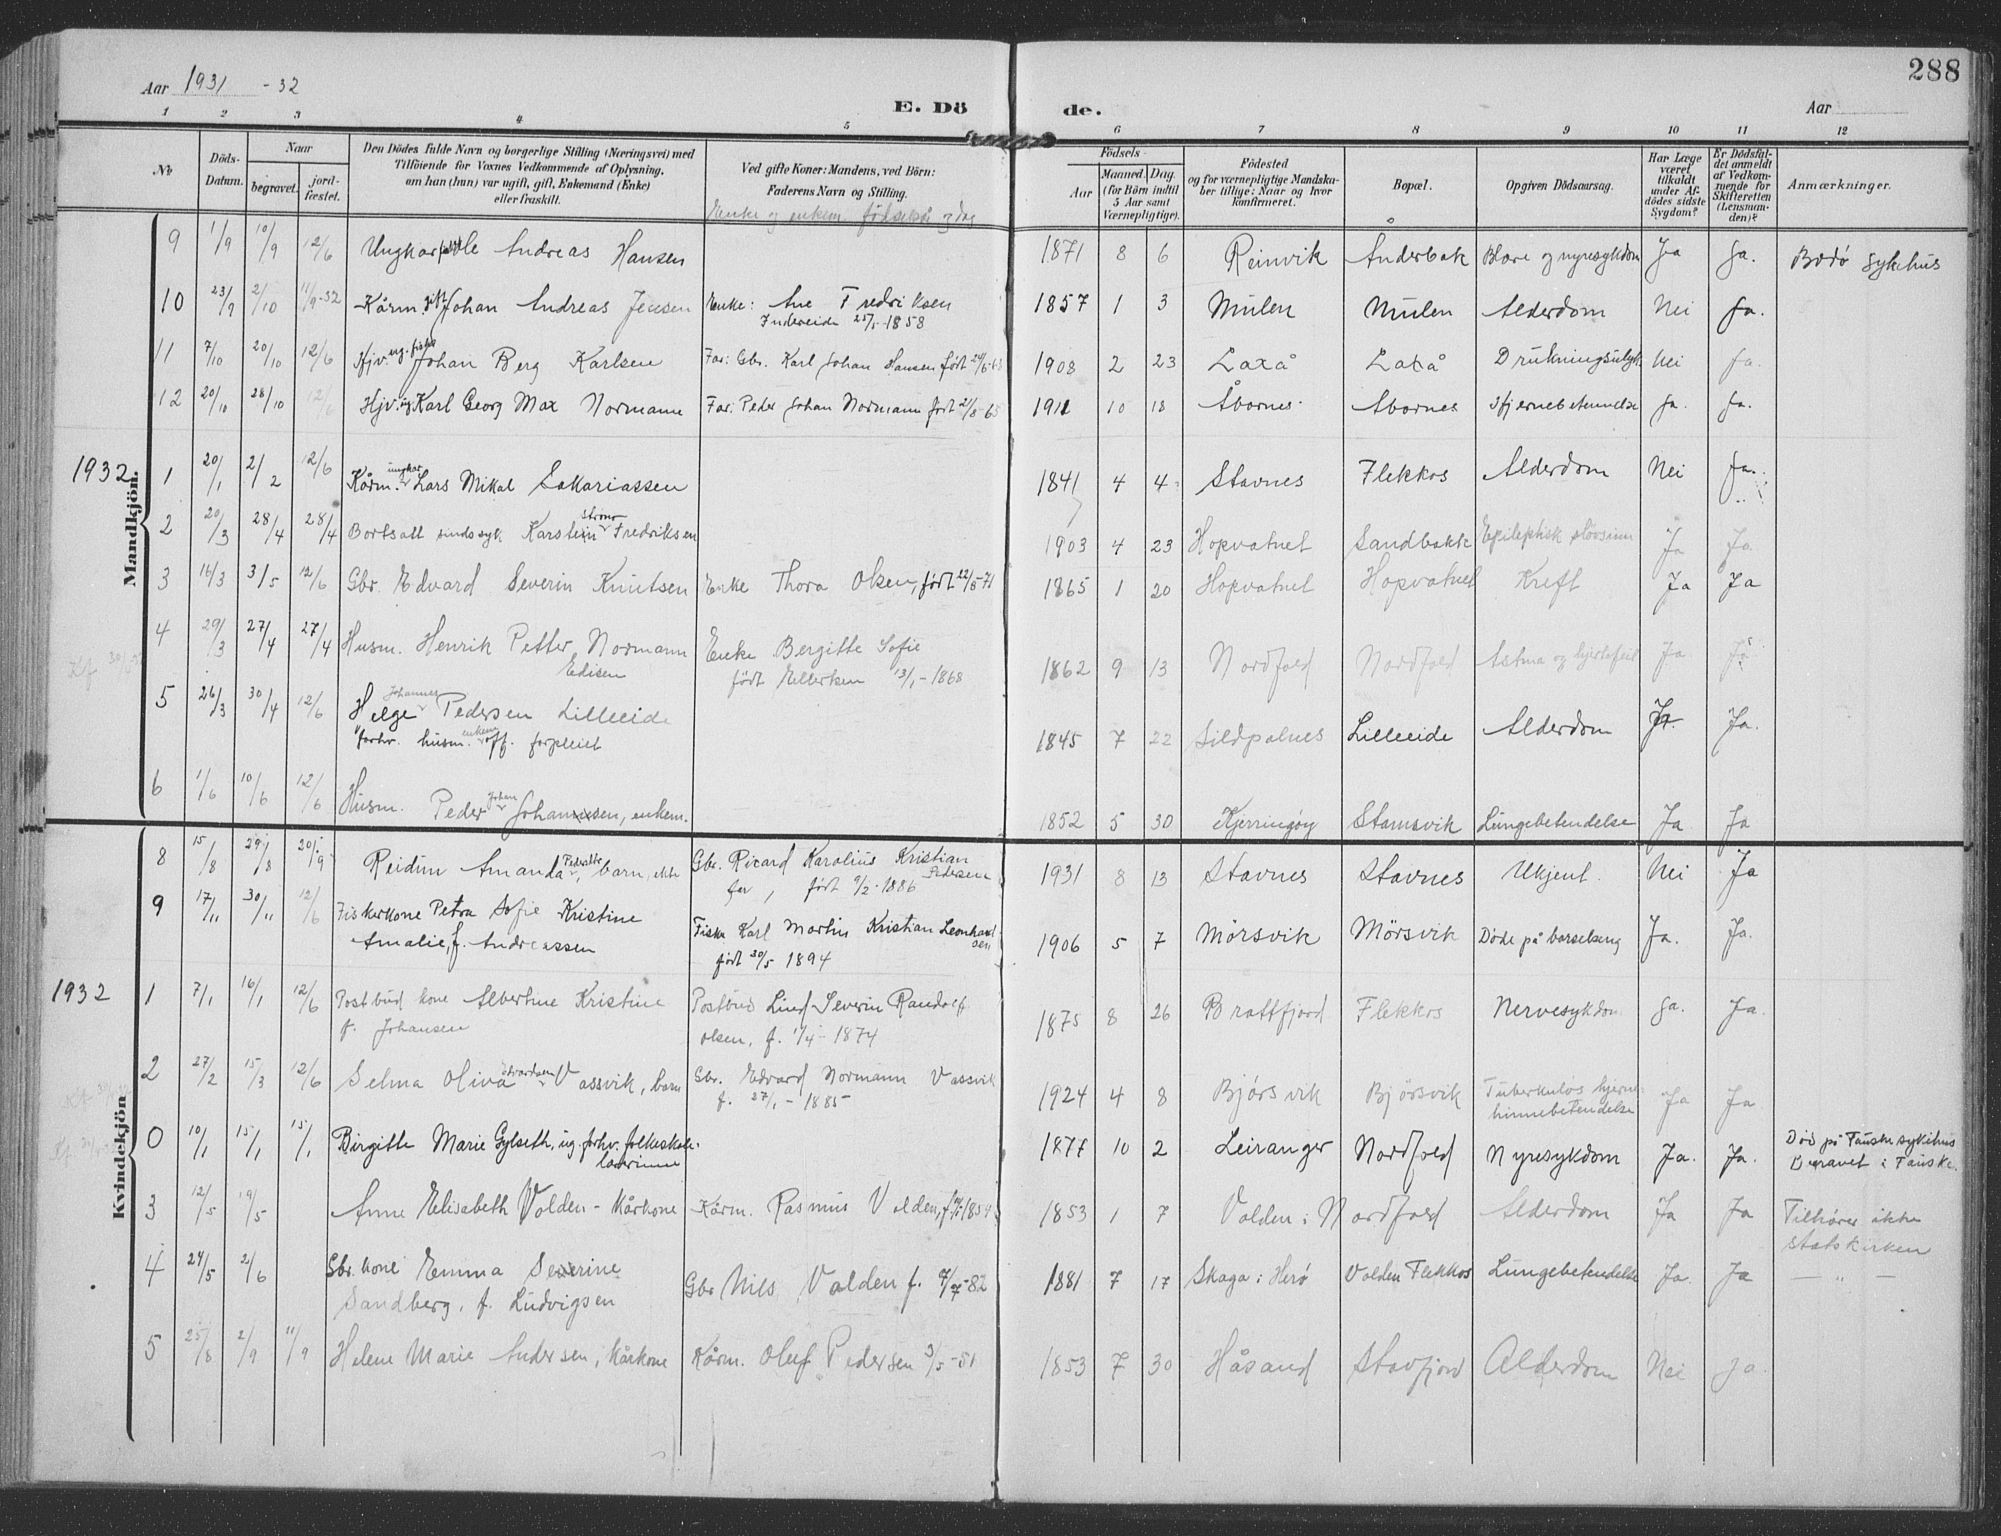 288
Aar 1931 - 32
E. Dö de.
Aar
1 2 3 4 5 6 7 8 9 10 11 12
No
Döds-Datum.
Naar
begravet.
jord-fæstet.
Den Dödes fulde Navn og borgerlige Stilling (Næringsvei) med
Tilföiende for Voxnes Vedkommende af Oplysning,
om han (hun) var ugift, gift, Enkemand (Enke)
eller fraskilt.
Ved gifte Koner: Mandens, ved Börn:
Faderens Navn og Stilling.
Enke og enkem. födselsår og dag
Födsels-
Aar
Maaned. (for Börn indtil 5 Aar samt Værnepligtige).
Dag.
Födested
og for værnepligtige Mandska-
ber tillige: Naar og hvor
konfirmeret.
Bopæl.
Opgiven Dödsaarsag.
Har Læge været tilkaldt under Af-dödes sidste Sygdom?
Er Dödsfal-det anmeldt af Vedkom-mende for Skifteretten (Lensman-den)?
Anmærkninger.
Mandkjön.
9 1/9 10/9 12/6 Ungkar Ole Andreas Hansen 1871 8 6 Reinvik Ånderbak Blære og nyresykdom Ja Ja. Bodø sykehus
10 23/9 2/10 11/9-32 Kårm. gift Johan Andreas Jensen Enke: Ane Fredriksen 1857 1 3 Mulen Mulen Alderdom Nei Ja.
Indereide 25/5-1858
11 7/10 20/10 12/6 Hjv. ug. fisker Johan Berg Karlsen Far: Gbr. Karl Johan Hansen født 1908 2 23 Laxå Laxå Drukningsulyk. Nei Ja.
12 20/10 28/10 12/6 Hjv. ug. Karl Georg Max Normann Far: Peder Johan Normann født 2/8-65 1911 10 18 Åbornes Åbornes Hjernebetennelse Ja. Ja.
1932 1 20/1 2/2 12/6 Kårm. ungkar Lars Mikal Sakariassen 1841 4 4 Stavnes Flekkos Alderdom Nei Ja.
2 20/3 28/4 28/4 Bortsatt sindssyk Karstein Strøm Fredriksen 1903 4 23 Hopvatnet Sandbakk Epileptisk sløvsinn Ja Ja
3 16/3 3/5 12/6 Gbr. Edvard Severin Knutsen Enke Thora Olsen, født 22/5-71 1865 1 20 Hopvatnet Hopvatnet Kreft Ja Ja
4 29/3 27/4 27/4 Husm. Henrik Petter Normann Enke Bergitte Sofie 1862 9 13 Nordfold Nordfold Astma og hjertefeil Ja Ja
Edisen født Ellertsen 13/1-1868
5 26/3 30/4 12/6 Helge Johannes Pedersen Lilleeide 1845 7 22 Sildpolnes Lilleeide Alderdom Ja. Ja.
forhv. husm. enkem. off. forpleiet
6 1/6 10/6 12/6 Husm. Peder Johan Johannesen, enkem. 1852 5 30 Kjerringøy Stamsvik Lungebetendelse Ja Ja
Kvindekjön
8 15/8 29/8 20/9 Reidun Amanda, barn, ekte Gbr. Ricard Karolius Kristian Pedersen 1931 8 13 Stavnes Stavnes Ukjent. Nei Ja
far, født 9/2-1886
9 17/11 30/11 12/6 Fiskerkone Petra Sofie Kristine Fisker Karl Martin Kristian Leonhardsen 1906 5 7 Mørsvik Mørsvik Døde på barselseng Ja. Ja.
Amalie, f. Andreassen født 30/5 1894
1932 1 7/1 16/1 12/6 Postbud kone Albertine Kristine Postbud Lind Severin Randolf 1875 8 26 Brattfjord Flekkos Nervesykdom Ja. Ja.
f. Johansen Olsen, f. 1/4-1874
2 27/2 15/3 12/6 Selma Oliva Edvardsen Vassvik, barn Gbr. Edvard Normann Vassvik 1924 4 8 Bjørsvik Bjørsvik Tuberkuløs hjerne-hinnebetendelse Ja Ja
f. 27/1-1885
0 10/1 15/1 15/1 Birgitte Marie Gylseth, ug. forhv. folkeskole- 1877 10 2 Leiranger Nordfold Nyresykdom Ja. Ja. Død på Fauske sykehus
lærerinne Begravet i Fauske.
3 12/5 19/5 Anne Elisabeth Valden - Kårkone Kårm. Rasmus Valden, 1853 1 7 Valden i Nordfold Alderdom Ja Ja Tilhører ikke
statskirken
4 24/5 2/6 Gbr. kone Emma Severine Gbr Nils Valden f. 7/7-82 1881 7 17 Skaga i Herø Valden Flekkos Lungebetendelse Ja. Ja - " -
Sandberg, f. Ludvigsen
5 25/8 2/9 11/9 Helene Marie Andersen, Kårkone Kårm. Oluf Pedersen 3/5-51 1853 7 30 Håsand Stavfjord Alderdom Nei Ja